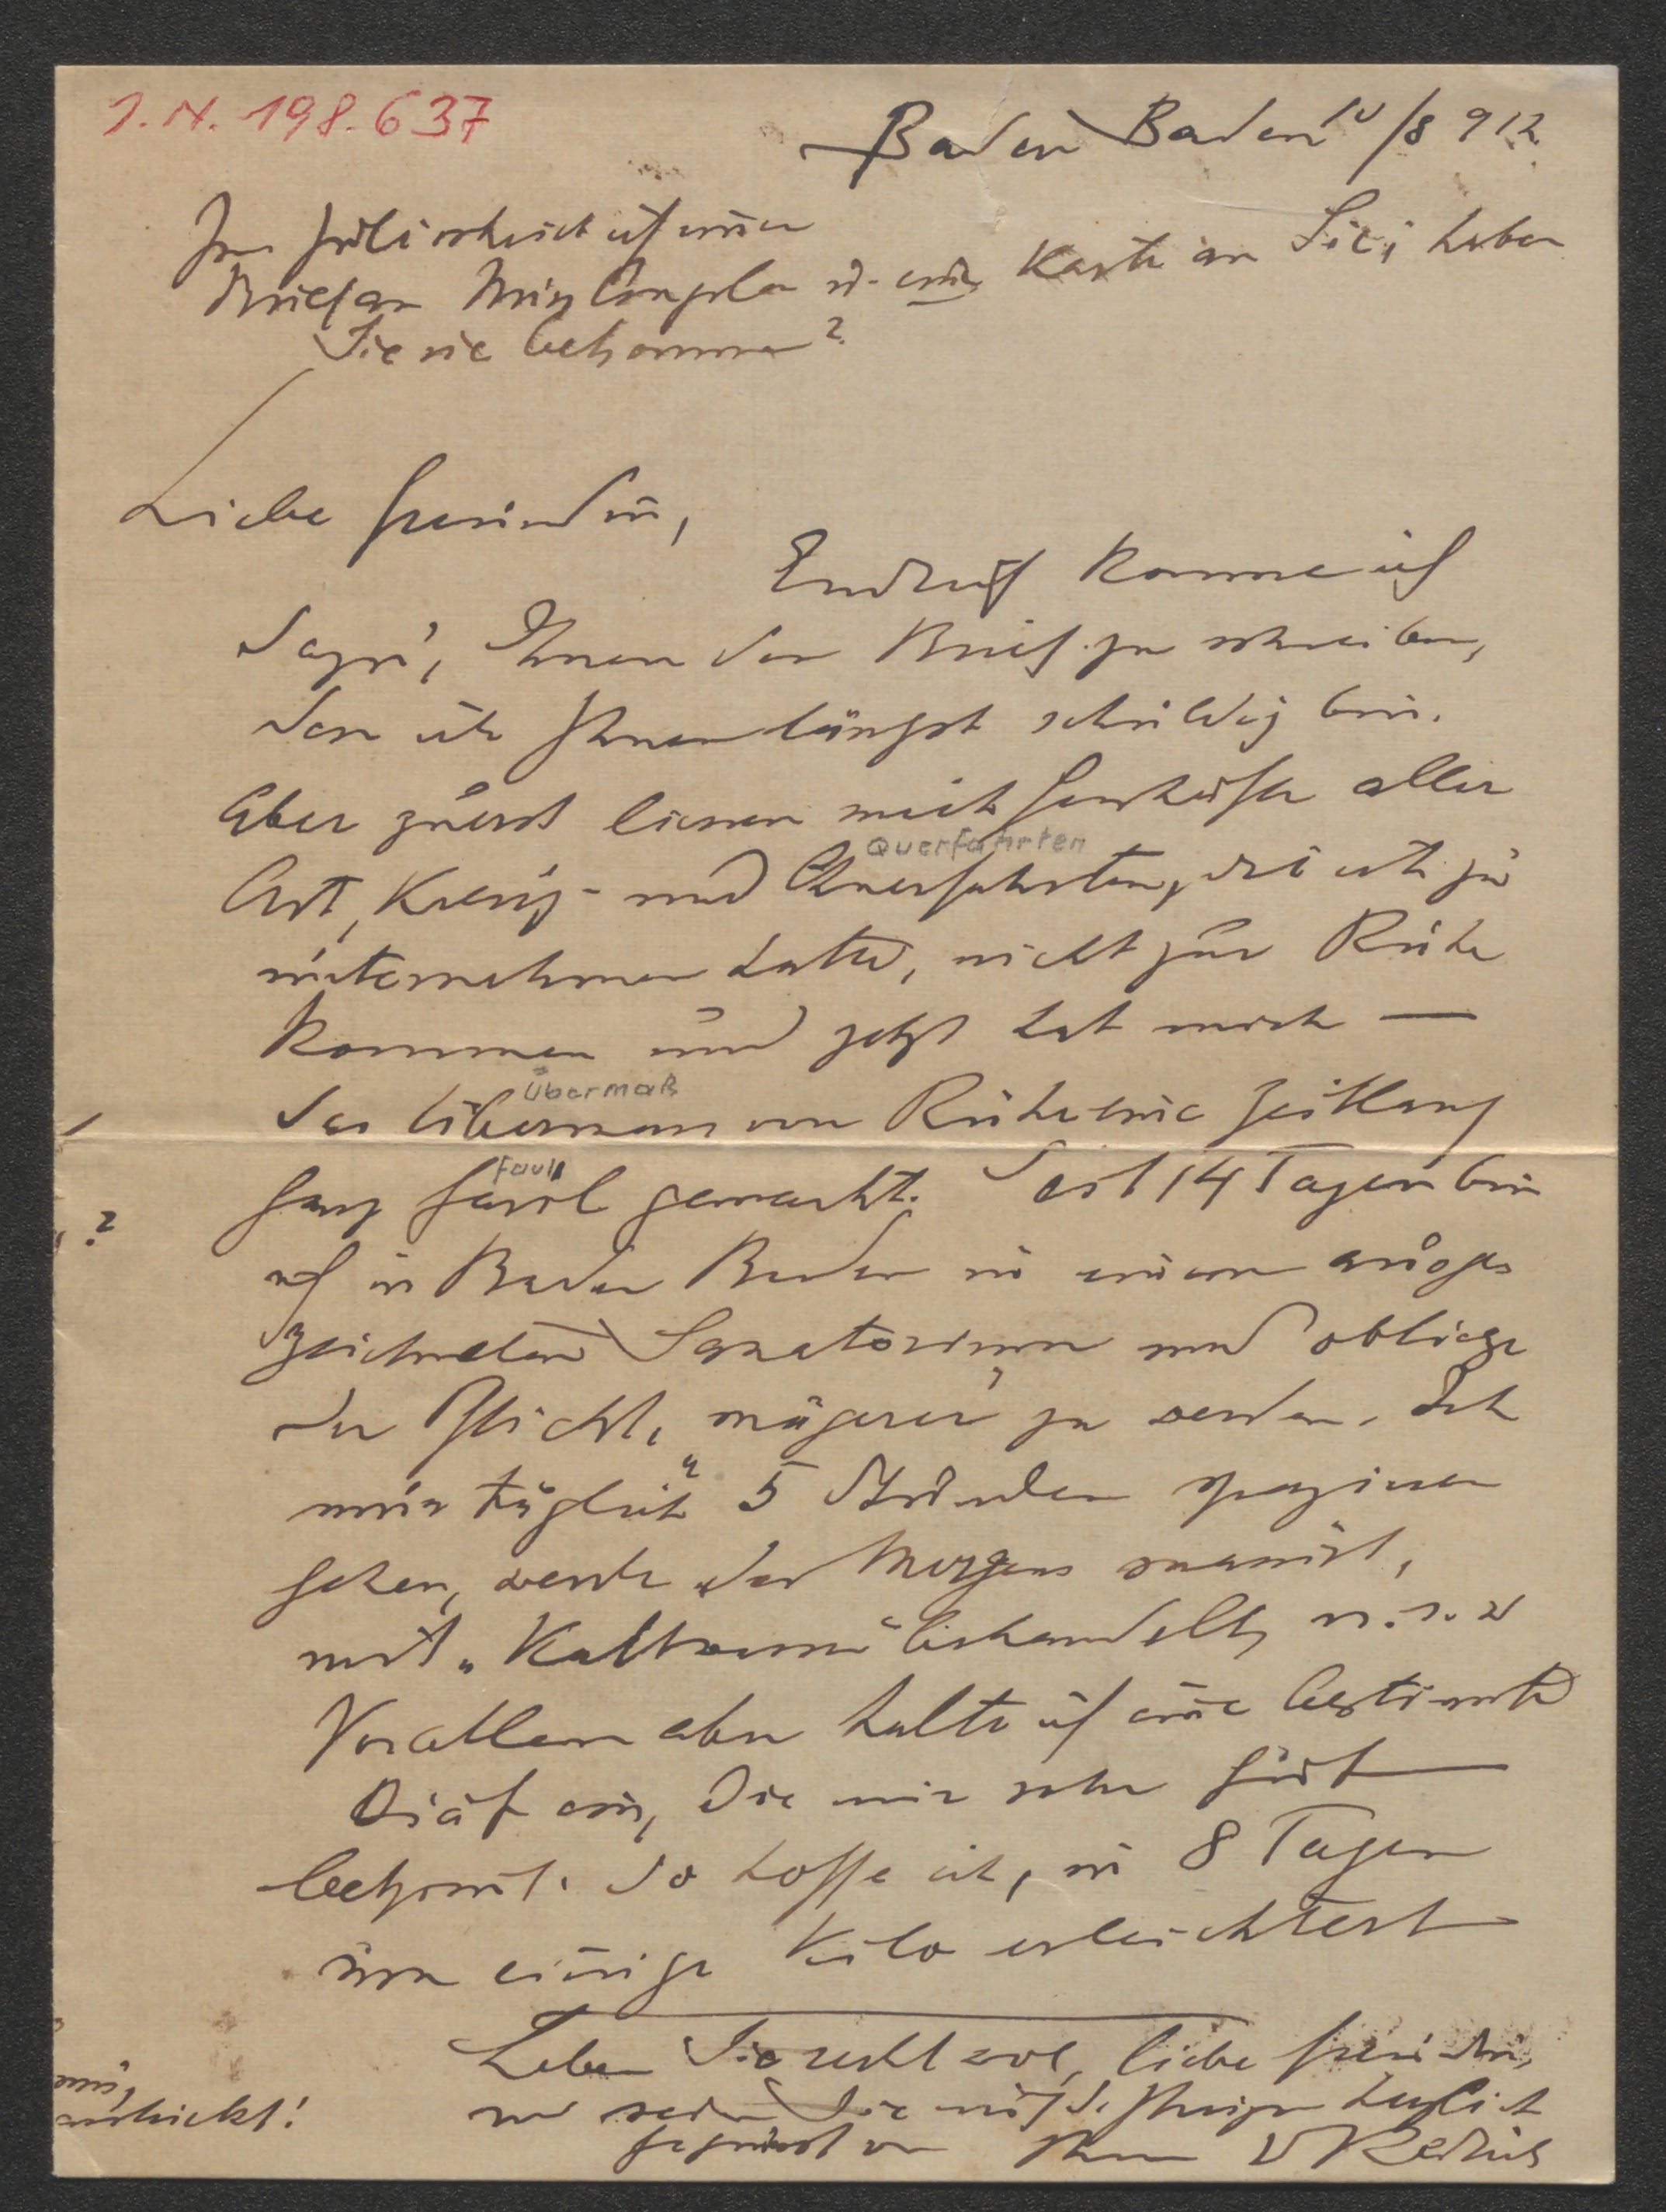 I.N. 198.637
Baden Baden 10/8 912
Im Juli schickt ich einen
Brief an u. eine Karte an Lili, haben
Sie sie bekommen?
Liebe Freundin,
Endlich komme ich
dazu, Ihnen den Brief zu schreiben,
den ich Ihnen längst schuldig bin.
Aber zuerst liessen mich Geschäfte aller
Querfahrten
Art, Kreuz- und Querfahrten, die ich zu
unternehmen hatte, nicht zur Ruhe
kommen und jetzt hat mich —
Übermaß
das Übermass von Ruhe eine Zeitlang
faul
ganz faul gemacht. Seit 14 Tagen bin
ich in Baden Baden in einem ausge
zeichneten Sanatorium und obliege
der Pflicht, "magerer" zu werden. Ich
muss täglich 5 Stunden spazieren
gehen, werde des Morgens massirt,
mit "Kaltwasser" behandelt, u.s.w
Vor allem aber halte ich eine bestimmte
Diät ein, die mir sehr gut
bekomt. So hoffe ich, in 8 Tagen
um einige Kilo erleichtert
Leben Sie recht wol, liebe Freundin,
und seien Sie und die Ihrigen herzlich
gegrüsst von Ihrem V Redlich
?
schickt!